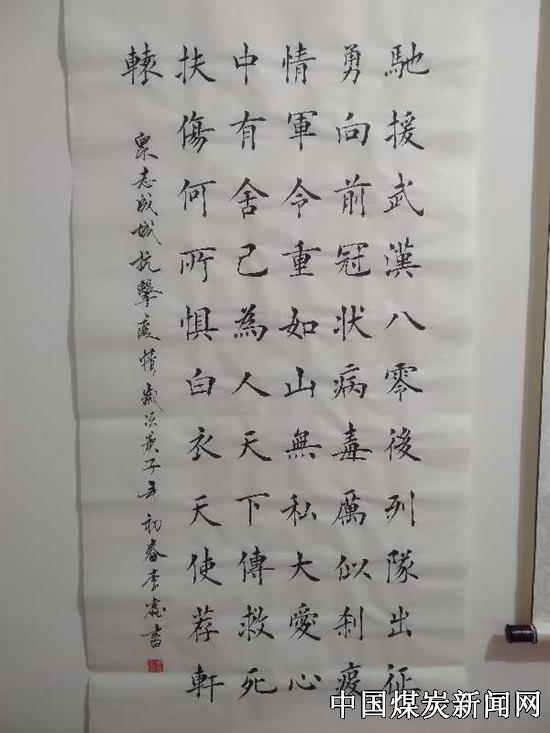 馳援武漢八零後列隊出征
勇向前冠状病毒厲似刹疫
情軍令重如山無私大愛心
中有舍己為人天下傳救死
扶傷何所惧白衣天使荐軒
轅
衆志成城抗擊疫情歲次庚子年初春李
書
中国煤炭新闻网